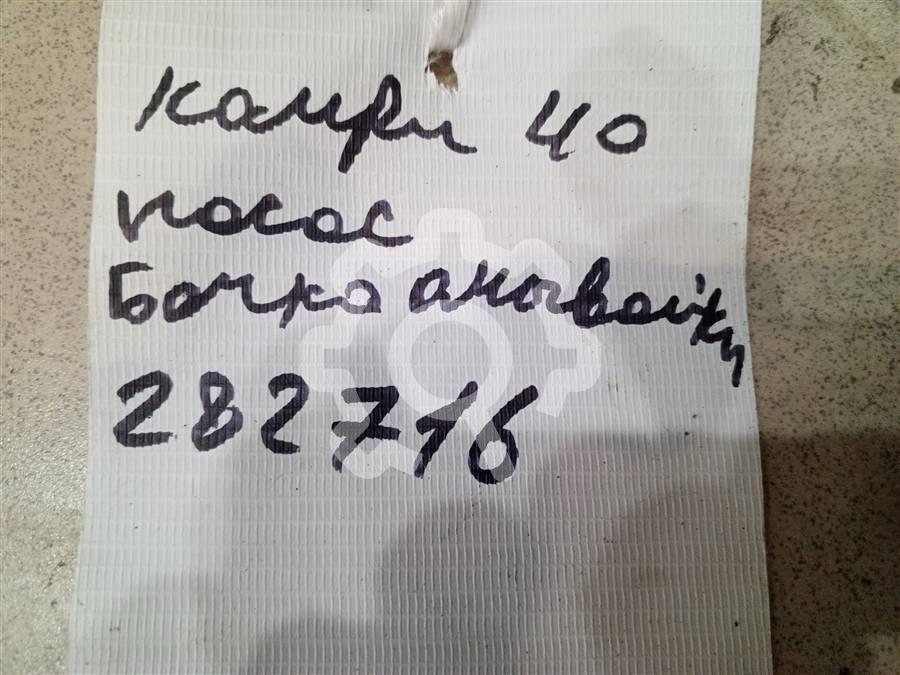 камри 40
насос
Бачка амывайки
282716